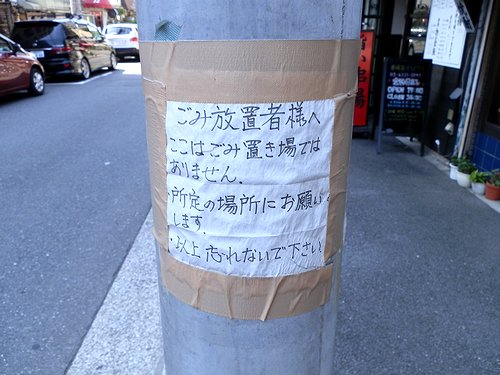 ごみ放置者様へ
ここはごみ置き場では
ありません.
・所定の場所にお願い
します.
・以上忘れないで下さい
OPEN
CLOSE